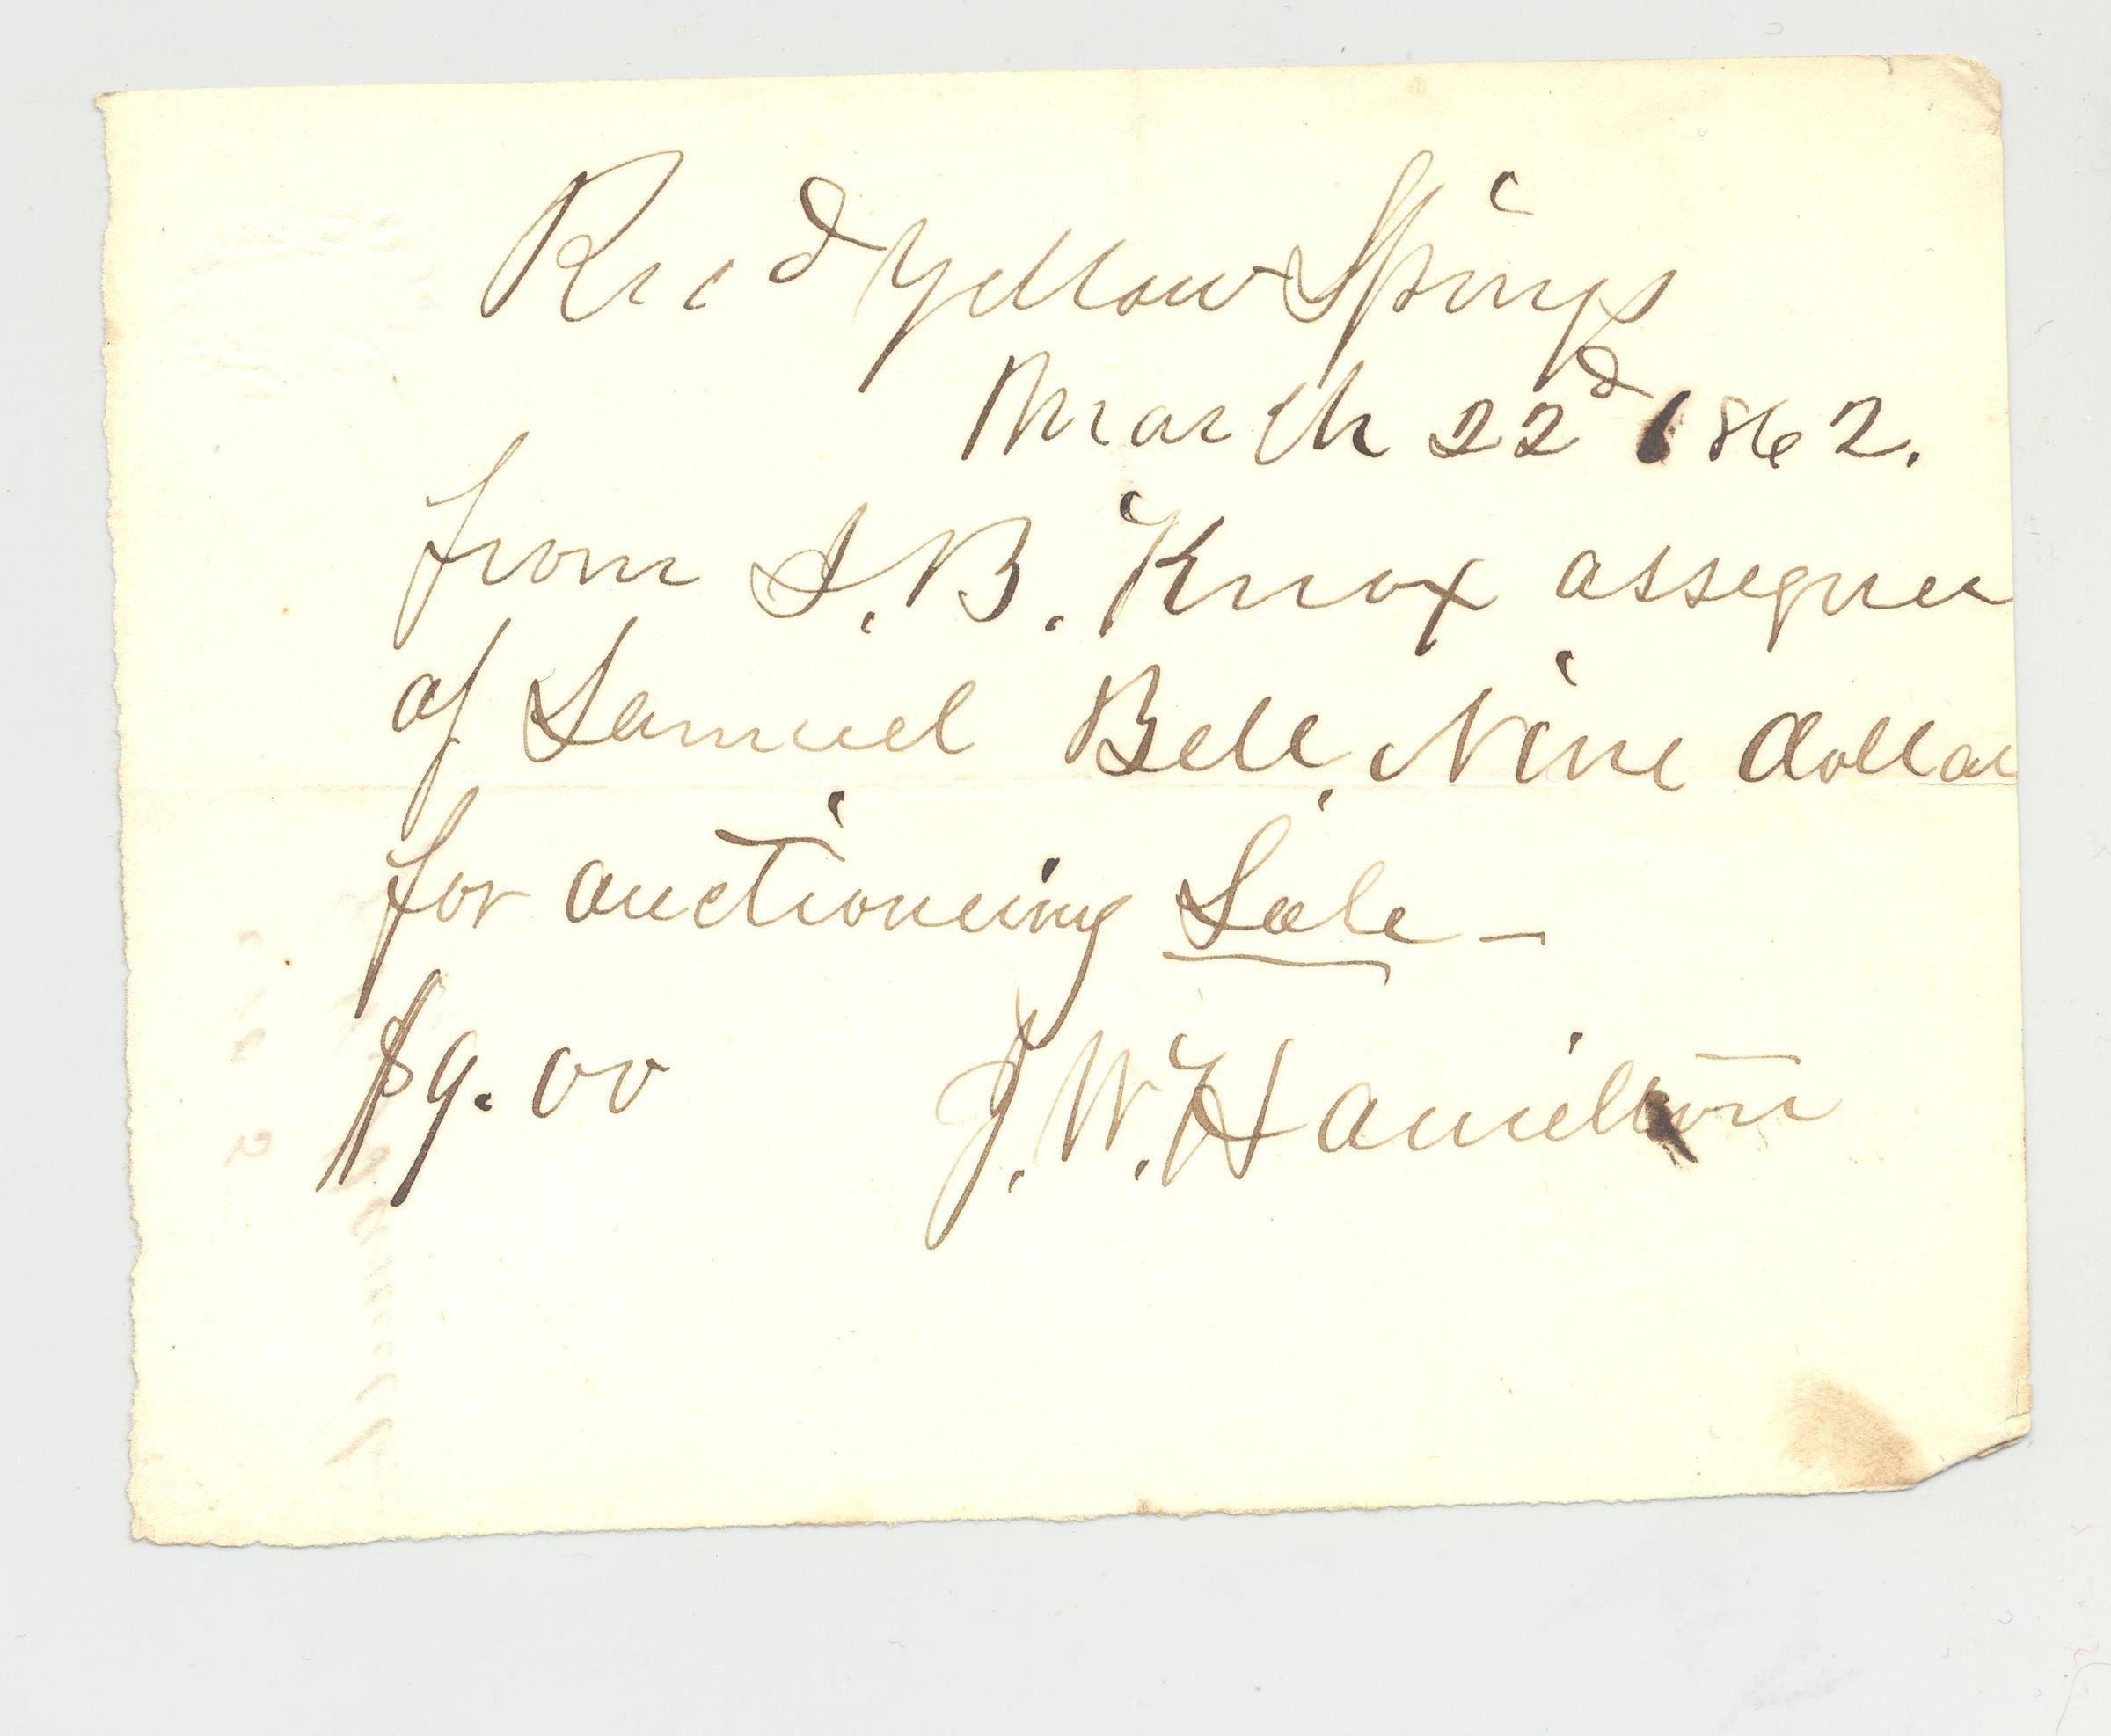 Recd Yellow Springs
March 22d 1862.
from S. B. Knox assignee
of Samuel Bell Nine dollar
for auctioneing Sale —
$9.00 J. W. Hamilton